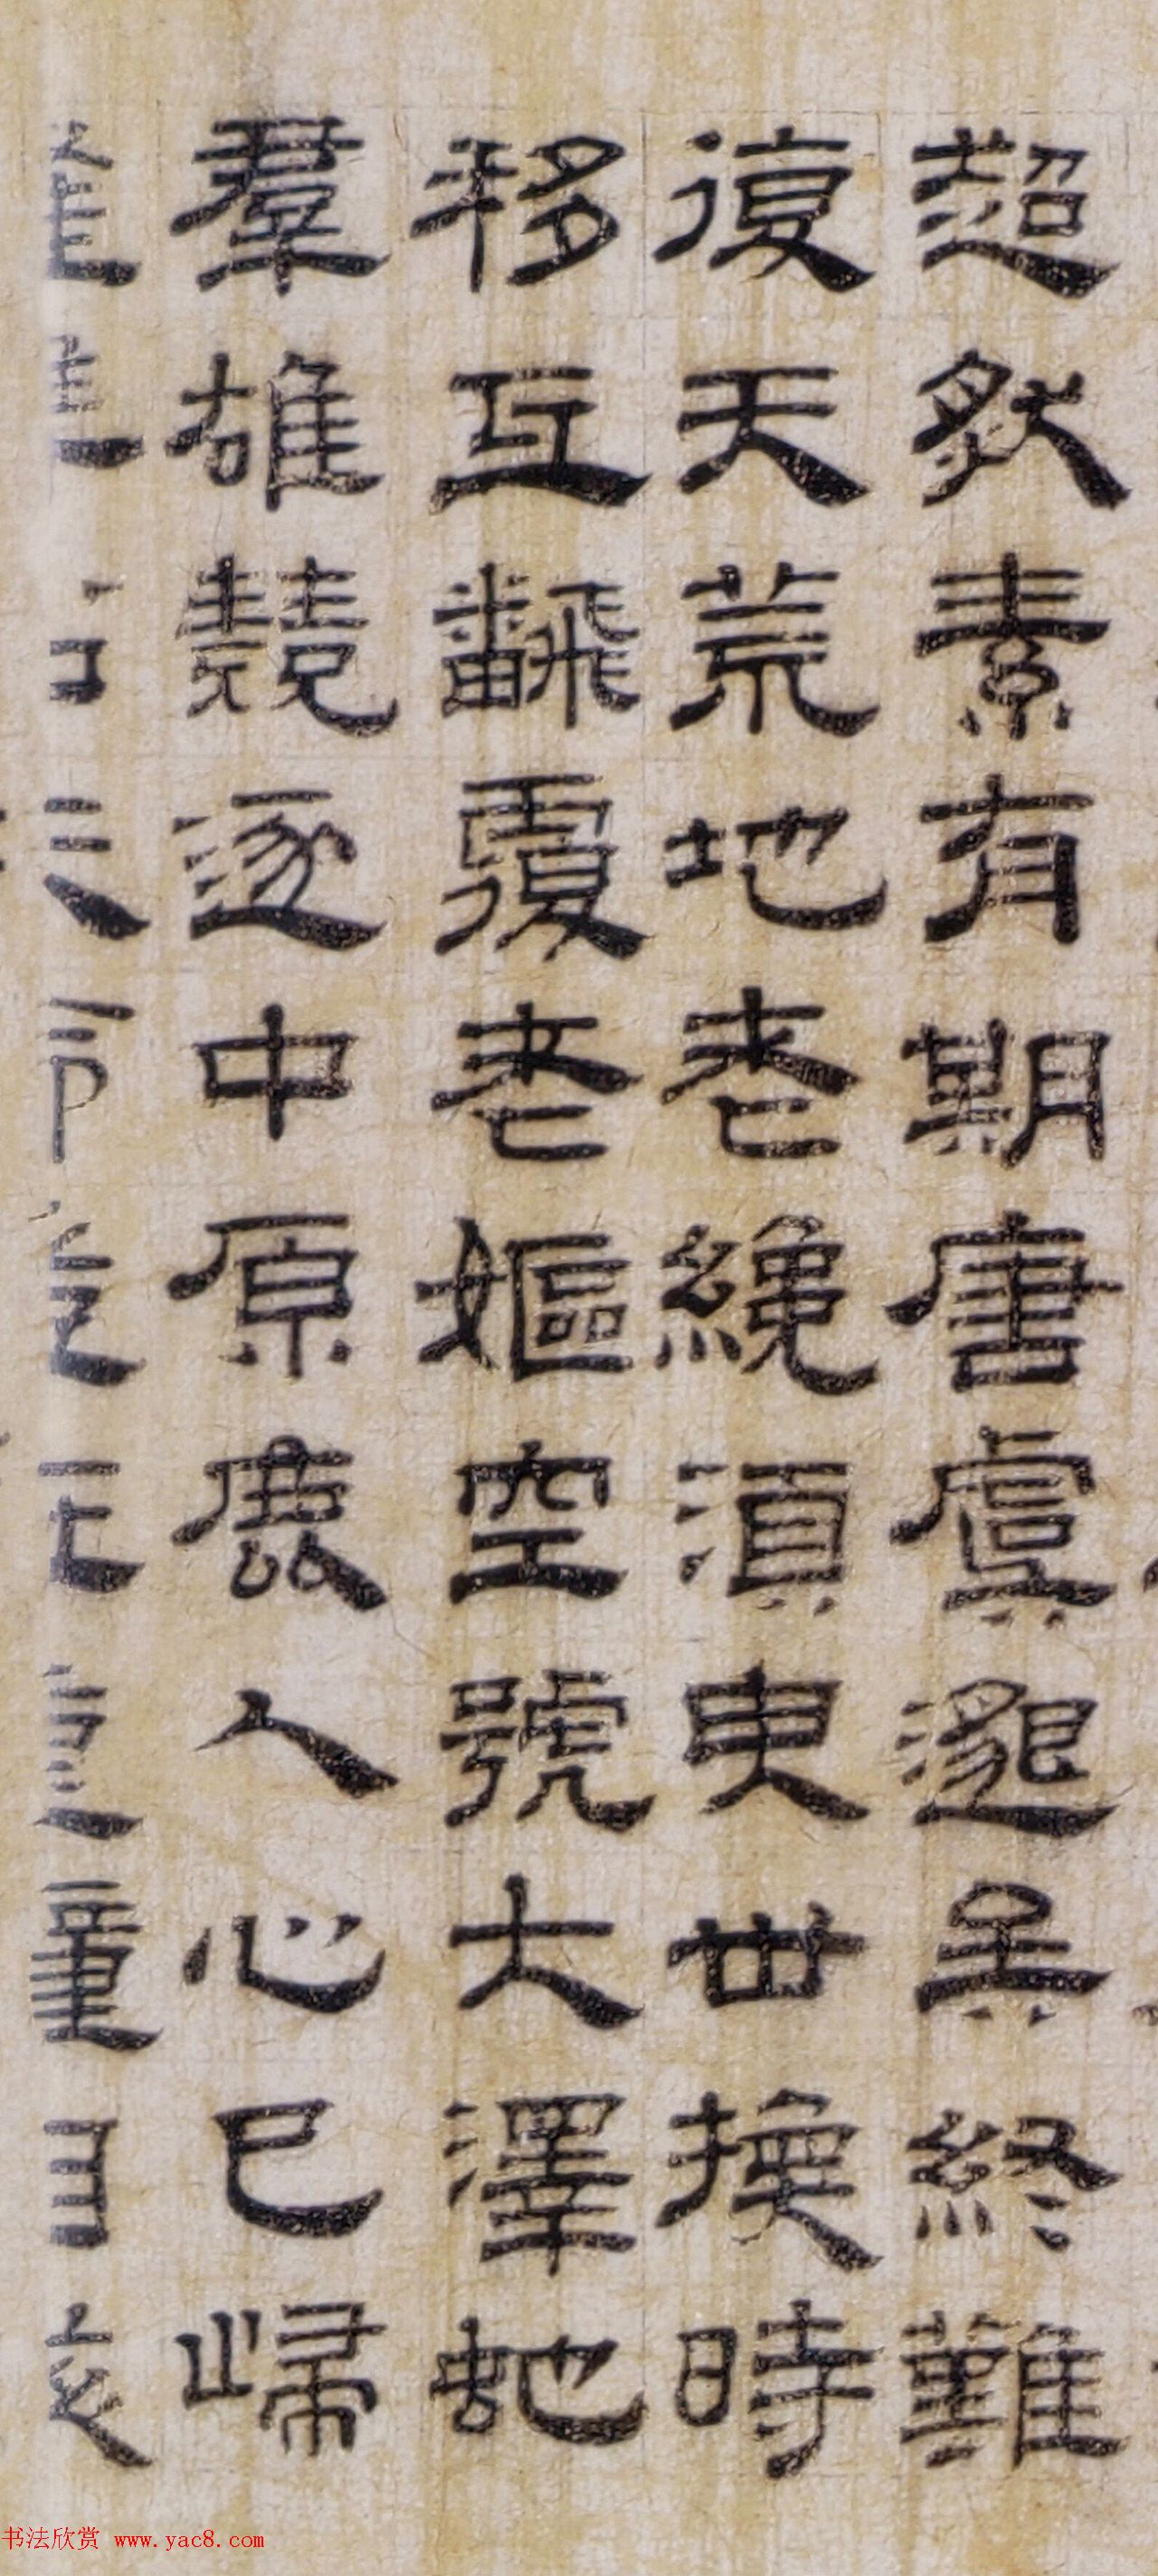 超然素有期唐虞邈矣終難
復天荒地老纔須臾世換時
移互飜覆老嫗空號大澤虵
羣雄競逐中原鹿人心已歸
书法欣赏 www.yac8.com